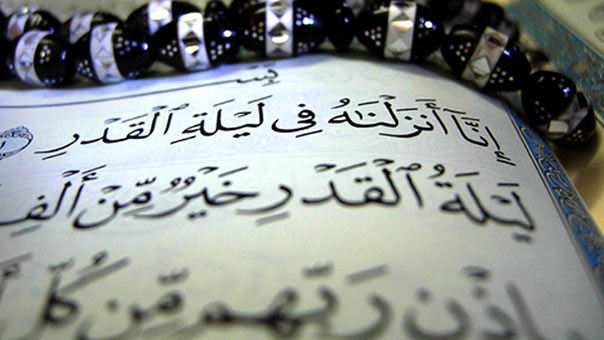 إِنَّآ أَنزَلْنَٰهُ فِى لَيْلَةِ ٱلْقَدْرِ
لَيْلَةُ ٱلْقَدْرِ خَيْرٌ مِّنْ أَلْفِ
رَبِّهِم مِّن كُلِّ